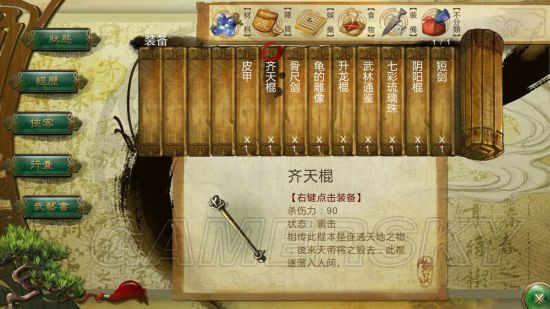 材料
雜貨
娛樂
食物
裝備
不分類
装备
1/1
狀態
經歷
俠客
行囊
武藝書
皮甲
x1
齐天棍
x1
骨尺剑
x1
龟的雕像
x1
升龙棍
x1
武林通鉴
x1
七彩琉璃珠
x1
阴阳棍
x1
短剑
x1
齐天棍
【右键点击装备】
杀伤力：90
状态：震击
相传此棍本是连通天地之物
，後来天帝将之毁去，此棍
遂落入人间。
物品
GAMERSKY